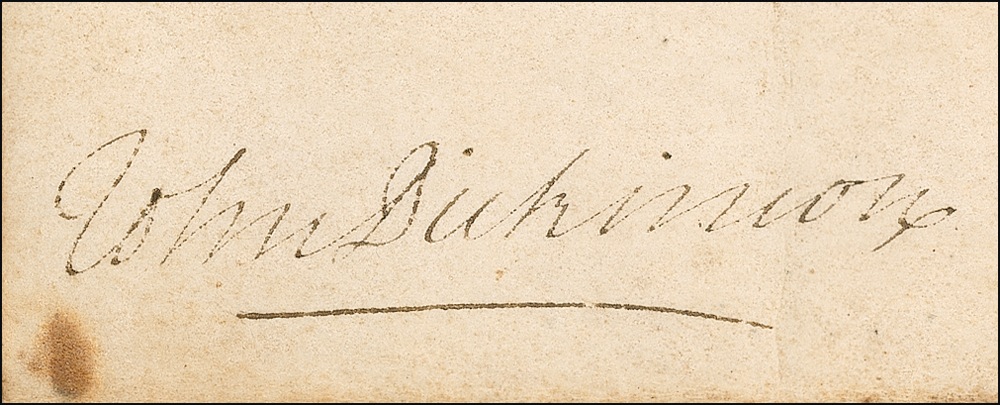 John Dickinson